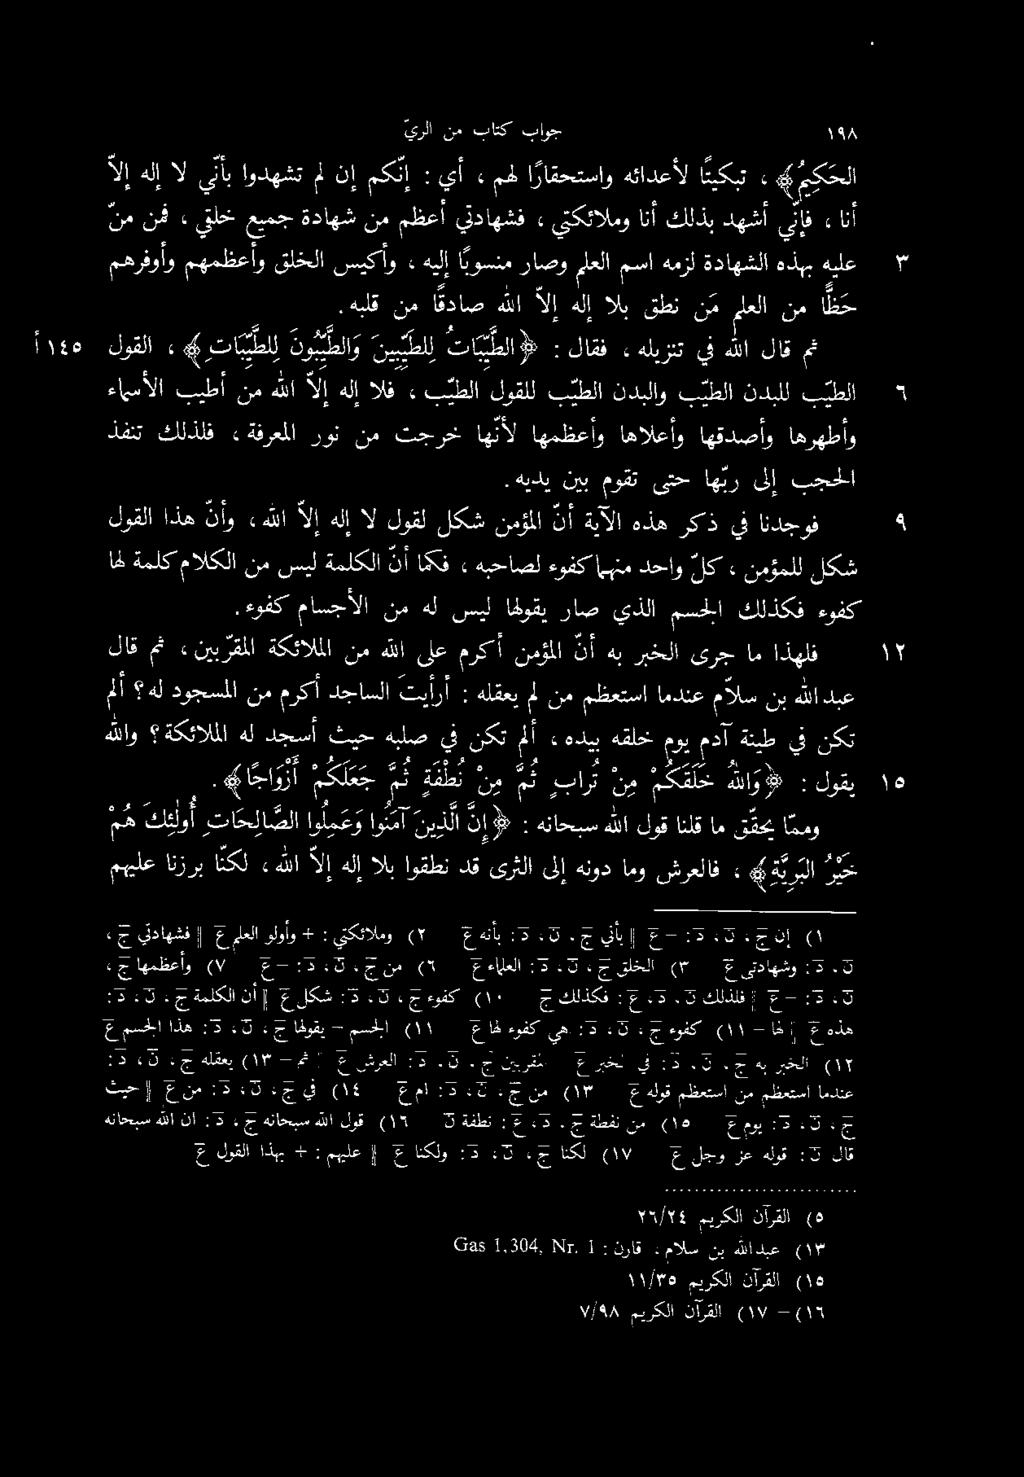 ١٩٨ جواب كتاب من الريّ
الحَكِيمُ﴾ ، تبكيتًا لأعدائه واستحقارًا لهم ، أي : إنّكم إن لم تشهدوا بأنّي لا إله إلاّ
أنا ، فإنّي أشهد بذلك أنا وملائكتي ، فشهادتي أعظم من شهادة جميع خلقي ، فمن مَنّ
٣ عليه بهذه الشهادة لزمه اسم العلم وصار منسوبًا إليه ، وأكيس الخلق وأعظمهم وأوفرهم
حَظًّا من العلم مَن نطق بلا إله إلاّ الله صادقًا من قلبه.
ثم قال الله في تنزيله ، فقال : ﴿الطَّيِّبَاتُ لِلطَّيِّبِينَ وَالطَّيِّبُونَ لِلطَّيِّبَاتِ﴾ ، القول ١٤٥ أ
٦ الطيّب للبدن الطيّب والبدن الطيّب للقول الطيّب ، فلا إله إلاّ الله من أطيب الأسماء
وأطهرها وأصدقها وأعلاها وأعظمها لأنّها خرجت من نور المعرفة ، فلذلك تنفذ
الحجب إلى ربّها حتى تقوم بين يديه.
٩ فوجدنا في ذكر هذه الآية أنّ المؤمن شكل لقول لا إله إلاّ الله ، وأنّ هذا القول
شكل للمؤمن ، كلّ واحد منهما كفوء لصاحبه ، فكما أنّ الكلمة ليس من الكلام كلمة لها
كفوء فكذلك الجسم الذي صار يقولها ليس له من الأجسام كفوء.
١٢ فلهذا ما جرى الخبر به أنّ المؤمن أكرم على الله من الملائكة المقرّبين ، ثم قال
عبدالله بن سلاّم عندما استعظم من لم يعقله : أرأيتَ الساجد أكرم من المسجود له ؟ ألم
تكن في طينة آدم يوم خلقه بيده ، ألم تكن في صلبه حيث أسجد له الملائكة ؟ والله
١٥ يقول : ﴿وَاللهُ خَلَقَكُمْ مِنْ تُرابٍ ثُمَّ مِنْ نُطْفَةٍ ثُمَّ جَعَلَكُمْ أَزْوَاجًا﴾.
وممّا يحقّق ما قلنا قول الله سبحانه : ﴿إِنَّ الَّذِينَ آمَنُوا وَعَمِلُوا الصَّالِحَاتِ أُولٰئِكَ هُمْ
خَيْرُ البَرِيَّةِ﴾ ، فالعرش وما دونه إلى الثرى قد نطقوا بلا إله إلاّ الله ، لكنّا برزنا عليهم
١) إن ج ، ن ، د : – ع ‖ بأني ج ، ن ، د : بأنه ع ٢) وملائكتي : + وأولو العلم ع ‖ فشهادتي ج ،
ن ، د : وشهادتي ع ٣) الخلق ج ، ن ، د : العلماء ع ٦) من ج ، ن ، د : – ع ٧) وأعظمها ج ،
ن ، د : – ع ‖ فلذلك ن ، د ، ع : فكذلك ج ١٠) كفوء ج ، ن ، د : شكل ع ‖ أن الكلمة ج ، ن ، د :
هذه ع ‖ لها – ١١) كفوء ج ، ن ، د : هي كفوء لها ع ١١) الجسم – يقولها ج ، ن ، د : هذا الجسم ع
١٢) الخبر به ج ، ن ، د : في الخبر ع ‖ المقربين ج ، ن ، د : العرش ع ‖ ثم – ١٣) يعقله ج ، ن ، د :
عندما استعظم من استعظم قوله ع ١٣) من ج ، ن ، د : ام ع ١٤) في ج ، ن ، د : من ع ‖ حيث
ج ، ن ، د : يوم ع ١٥) من نفطة ج ، د ، ع : نطفة ن ١٦) قول الله سبحانه ج ، د : ان الله سبحانه
قال ن : قوله عز وجل ع ١٧) لكنا ج ، ن ، د : ولكنا ع ‖ عليهم : + بهذا القول ع
٥) القرآن الكريم ٢٦/٢٤
١٣) عبدالله بن سلام ، قارن : Gas 1,304, Nr. 1
١٥) القرآن الكريم ١١/٣٥
١٦) – ١٧) القرآن الكريم ٧/٩٨